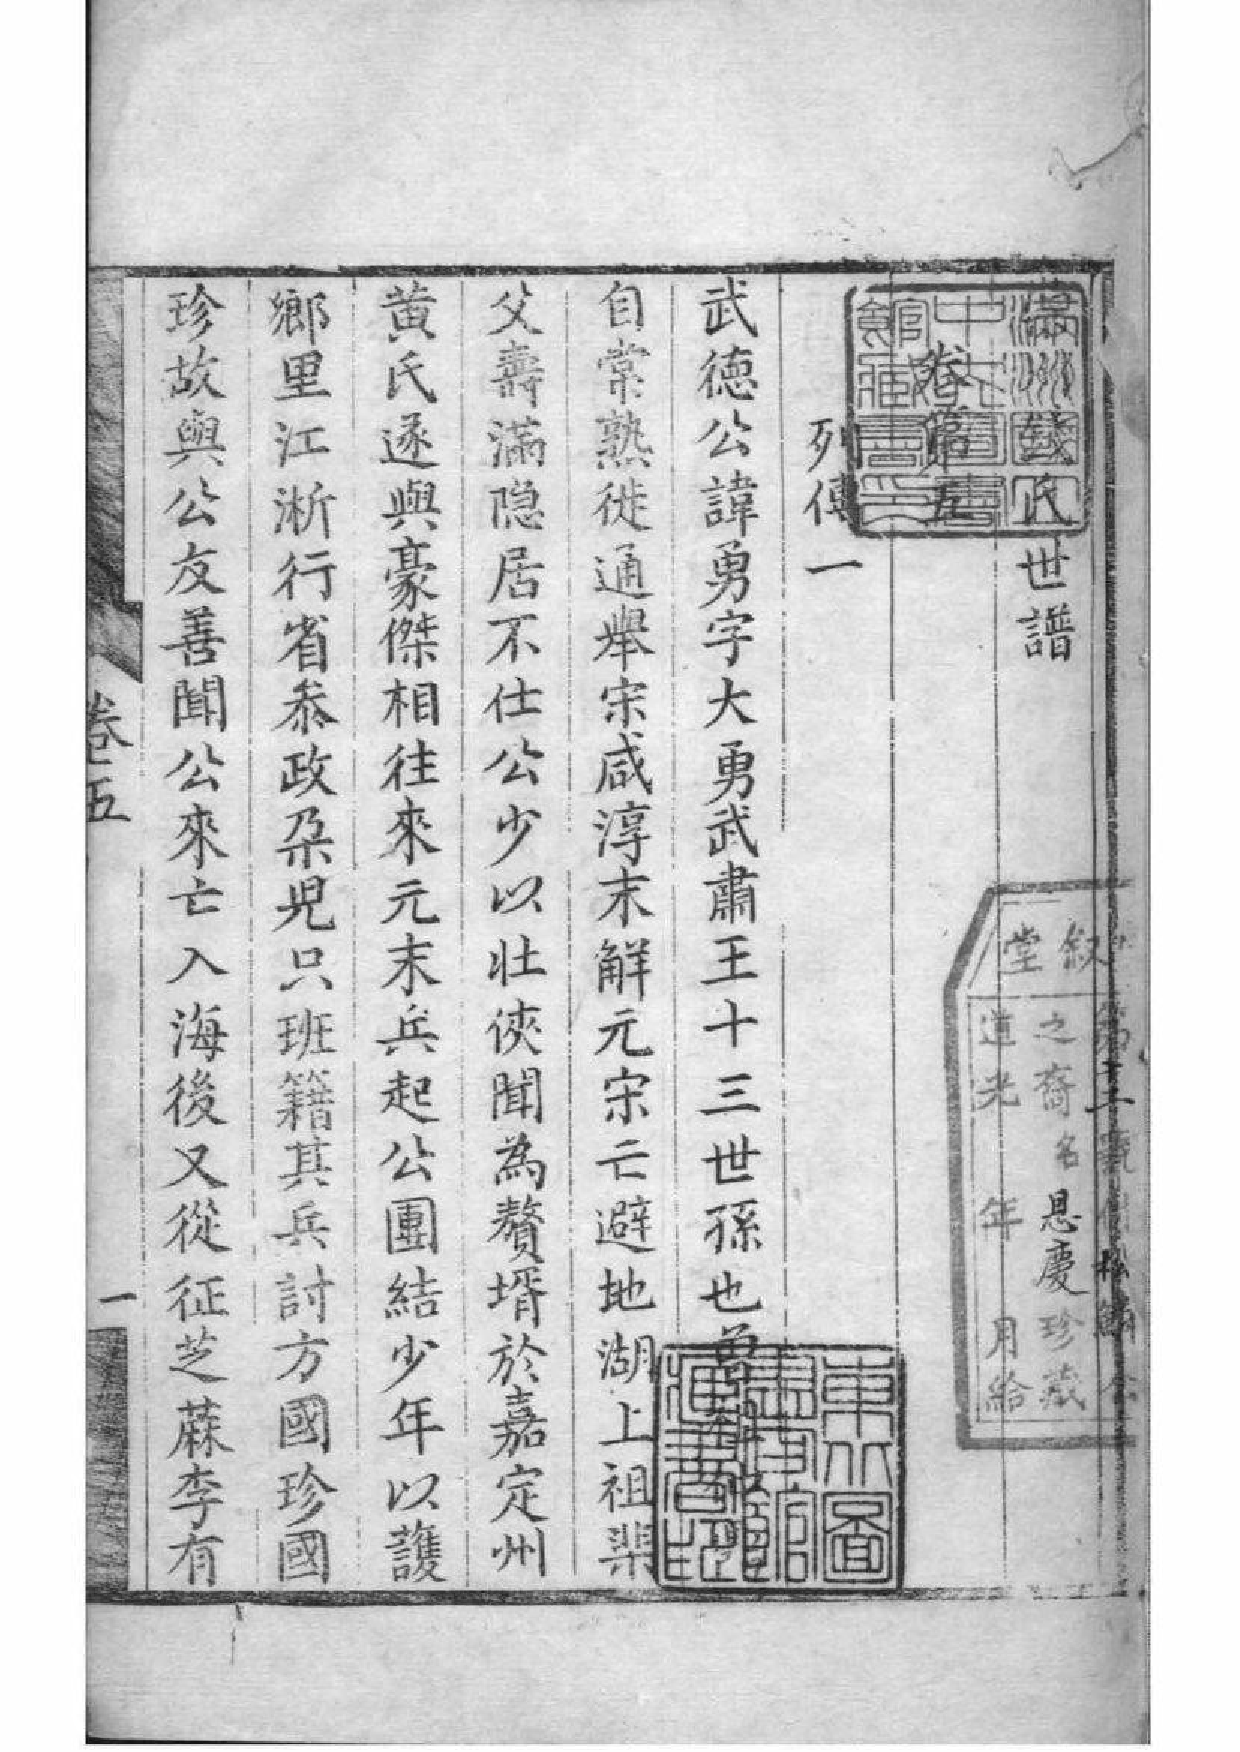 錢氏世譜
卷第五
列傳一
武德公諱勇字大勇武肅王十三世孫也曾祖
自常熟徙通舉宋咸淳末解元宋亡避地湖上祖棐
父壽滿隐居不仕公少以壯俠聞為贅壻於嘉定州
黄氏遂與豪傑相往來元末兵起公團結少年以護
鄉里江淅行省叅政朶児只班籍其兵討方國珍國
珍故與公友善聞公來亡入海後又從征芝蔴李有
卷五
一
叙
堂
之裔名思慶珍藏
道光 年 月給